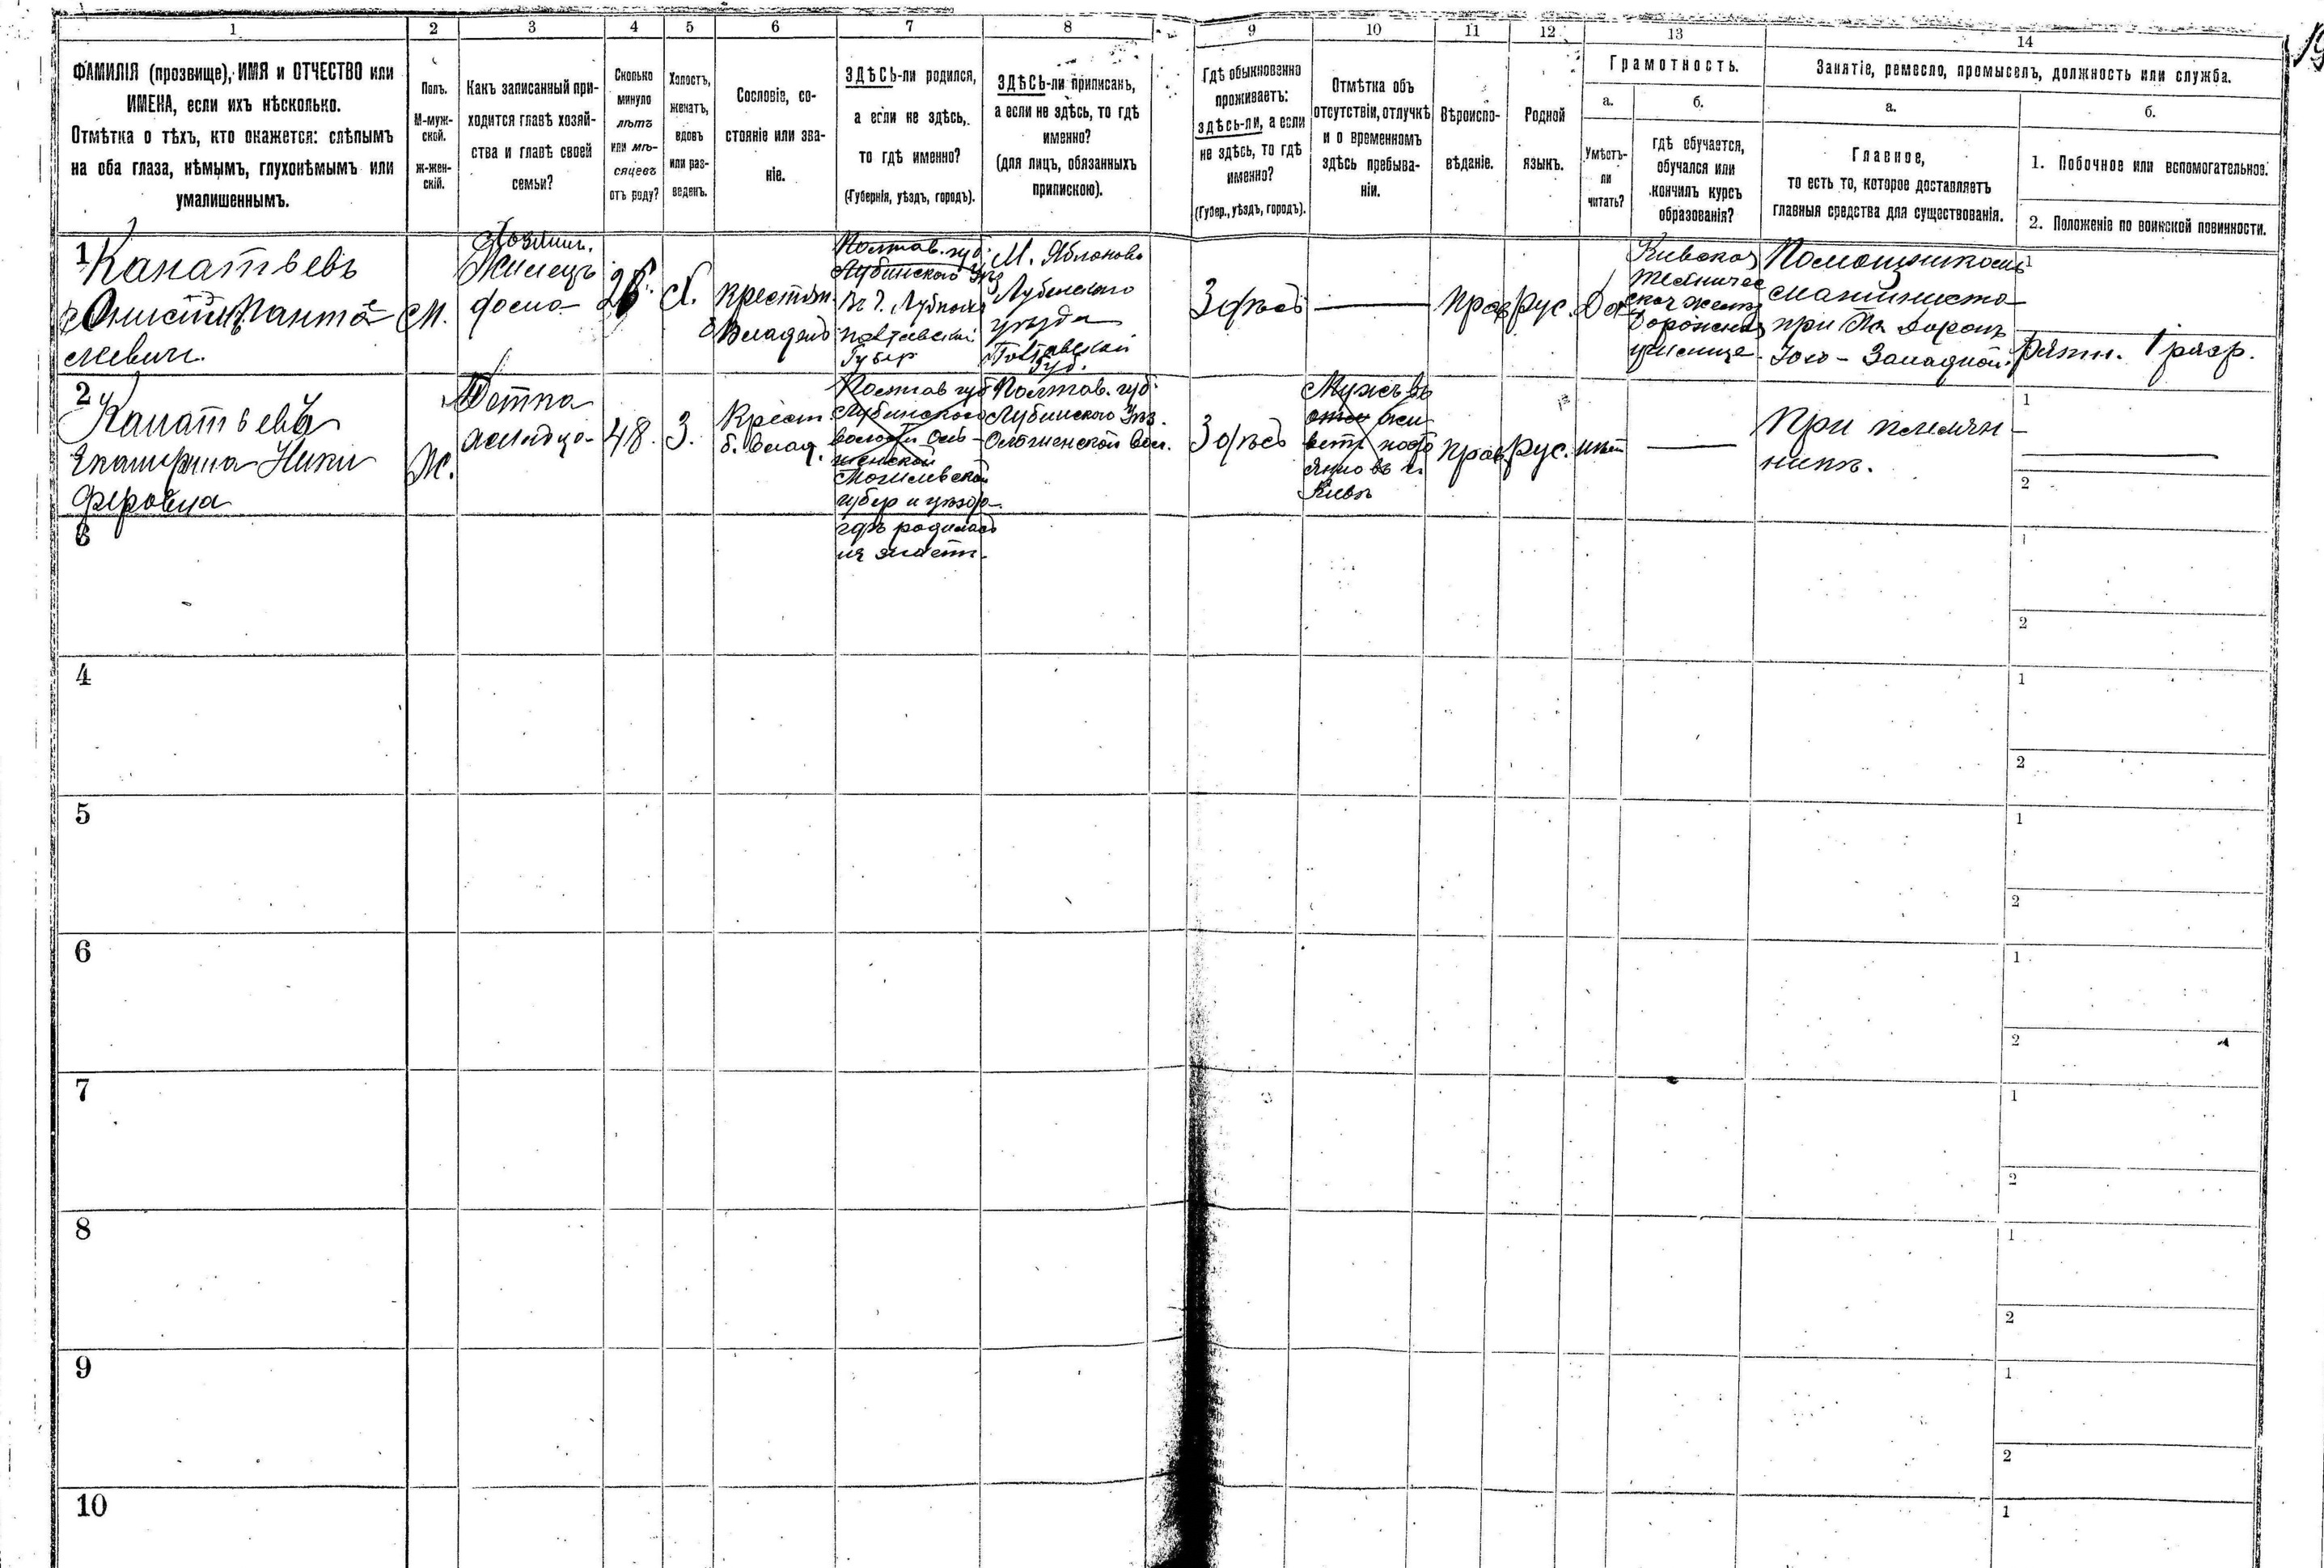 1 2 3 4 5 6 7 8 9 10 11 12 13 14
ФАМИЛІЯ (прозвище), ИМЯ и ОТЧЕСТВО или
ИМЕНА, если ихъ нѣсколько.
Отмѣтка о тѣхъ, кто окажется: слѣпымъ
на оба глаза, нѣмымъ, глухонѣмымъ или
умалишеннымъ.
Полъ.
М-муж-
ской.
ж-жен-
скій.
Какъ записанный при-
ходится главѣ хозяй-
ства и главѣ своей
семьи?
Сколько
минуло
лѣтъ
или мѣ-
сяцевъ
отъ роду?
Холостъ,
женатъ,
вдовъ
или раз-
веденъ.
Сословіе, со-
стояніе или зва-
ніе.
ЗДѢСЬ-ли родился,
а если не здѣсь,
то гдѣ именно?
(Губернія, уѣздъ, городъ).
ЗДѢСЬ-ли приписанъ,
а если не здѣсь, то гдѣ
именно?
(для лицъ, обязанныхъ
припискою).
Гдѣ обыкновенно
проживаетъ:
здѣсь-ли, а если
не здѣсь, то гдѣ
именно?
(Губер., уѣздъ, городъ).
Отмѣтка объ
отсутствіи, отлучкѣ
и о временномъ
здѣсь пребыва-
ніи.
Вѣроиспо-
вѣданіе.
Родной
языкъ.
Грамотность.
а.
Умѣетъ-
ли
читать?
б.
гдѣ обучается,
обучался или
кончилъ курсъ
образованія?
Занятіе, ремесло, промыселъ, должность или служба.
а.
Главное,
то есть то, которое доставляетъ
главныя средства для существованія.
б.
1. Побочное или вспомогательное.
2. Положеніе по воинской повинности.
1
Канатьевъ
Онисимъ Панте-
леевич.
М.
Хозяинъ.
Жилецъ
х.
крестьян.
б. Владел.
Полтав. губ.
Лубинскаго Уѣз
Полтавской
Губер
М. Яблоново
Лубенскаго
уѣзда
Полтавской
Губ.
Здѣсь
Прав
Рус.
Да
Кивское
Техничес
кое желѣз
Дорожное
училище.
Помощникомъ
машиниста
при
Юго-Западной.
1
ратн. 1 разр.
2
Канатьева
Екатерина Ники
форовна
Ж.
Тетка
48.
З.
Крест
б. Влад.
Полтав губ
Лубинскаго
волости
Могилевской
губер и уѣзда
гдѣ родилась
не знаетъ.
Полтав. губ.
Лубинскаго Уѣз.
вол.
Здѣсь
Мужъ въ
Кивѣ
Прав.
Рус.
При племян
никѣ.
1
2
3
1
2
4
1
2
5
1
2
6
1
2
7
1
2
8
1
2
9
1
2
10
1